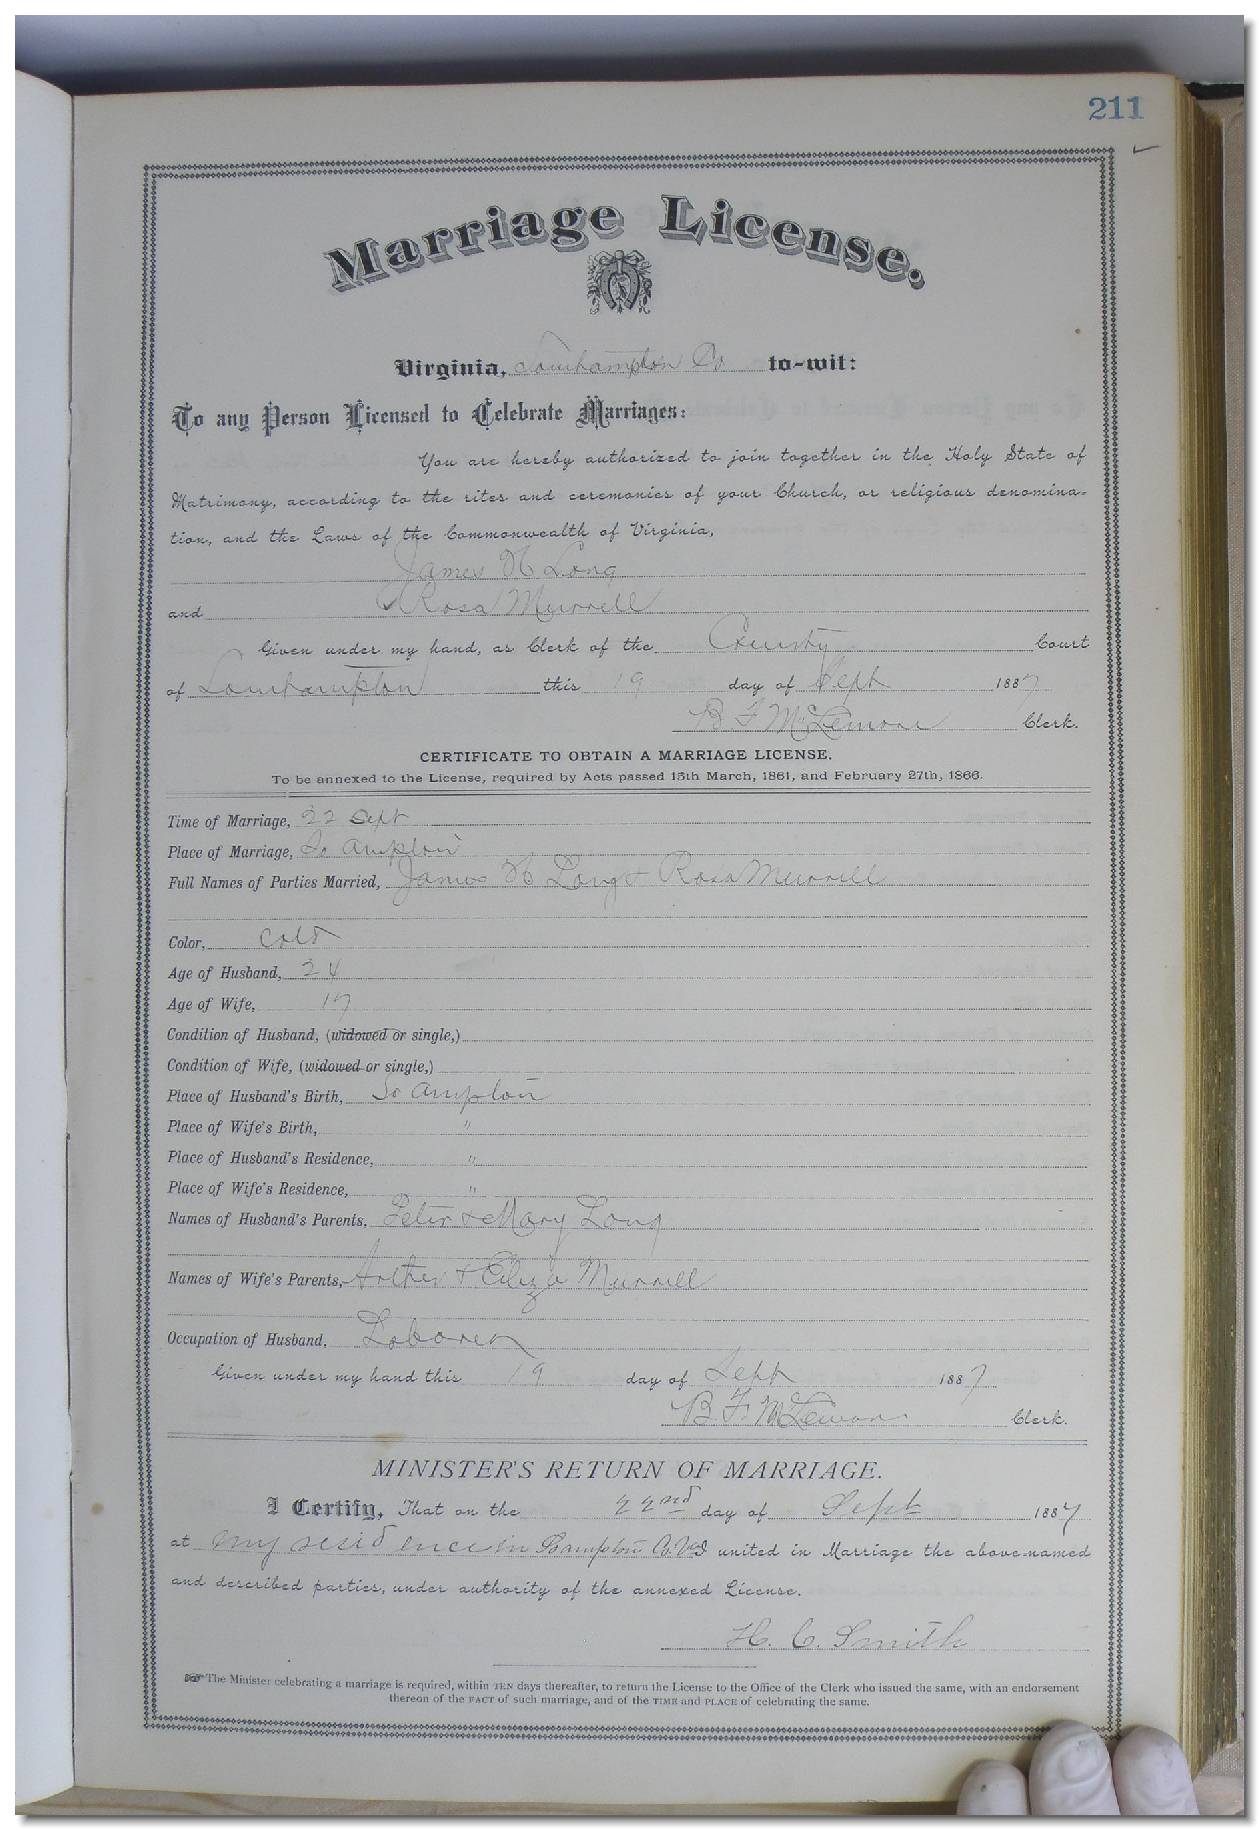 211
Marriage License.
Virginia, Southampton Co to-wit:
To any Person Licensed to Celebrate Marriages:
You are hereby authorized to join together in the Holy State of
Matrimony, according to the rites and ceremonies of your Church, or religious denomina-
tion, and the Laws of the Commonwealth of Virginia,
James H Long
and Rosa Murrell
Given under my hand, as Clerk of the County Court
of Southampton this 19 day of Sept 1887
B F McLemore Clerk.
CERTIFICATE TO OBTAIN A MARRIAGE LICENSE.
To be annexed to the License, required by Acts passed 15th March, 1861, and February 27th, 1866.
Time of Marriage, 22 Sept
Place of Marriage, So ampton
Full Names of Parties Married, James H Long & Rosa Murrell
Color, Cold
Age of Husband, 24
Age of Wife, 17
Condition of Husband, (widowed or single,)
Condition of Wife, (widowed or single,)
Place of Husband's Birth, So ampton
Place of Wife's Birth, "
Place of Husband's Residence, "
Place of Wife's Residence, "
Names of Husband's Parents, Peter & Mary Long
Names of Wife's Parents, Arther & Eliza Murrell
Occupation of Husband, Laborer
Given under my hand this 19 day of Sept 1887
B. F. McLemore Clerk.
MINISTER'S RETURN OF MARRIAGE.
I Certify, That on the 22nd day of Sept 1887
at my residence in Co. Va I united in Marriage the above-named
and described parties, under authority of the annexed License.
H. C. Smith
☞ The Minister celebrating a marriage is required, within TEN days thereafter, to return the License to the Office of the Clerk who issued the same, with an endorsement
thereon of the FACT of such marriage, and of the TIME and PLACE of celebrating the same.